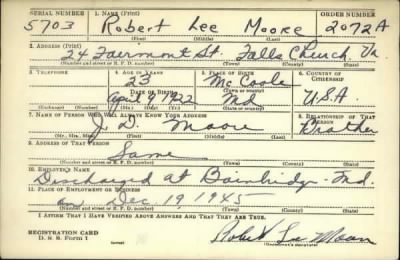 SERIAL NUMBER 1. NAME (Print) ORDER NUMBER
5703 Robert Lee Moore 2072A
(First) (Middle) (Last)
2. ADDRESS (Print)
24 Fairmont St. Falls Church Va.
(Number and street or R. F. D. number) (Town) (County) (State)
3. TELEPHONE 4. AGE IN YEARS 5. PLACE OF BIRTH 6. COUNTRY OF CITIZENSHIP
23 McCoole
DATE OF BIRTH
April 9 1922 Md U.S.A
(Exchange) (Number) (Mo.) (Day) (Yr.) (State or country)
7. NAME OF PERSON WHO WILL ALWAYS KNOW YOUR ADDRESS 8. RELATIONSHIP OF THAT PERSON
J. D. Moore Brother
(Mr., Mrs., Miss) (First) (Middle) (Last)
9. ADDRESS OF THAT PERSON
Same
(Number and street or R. F. D. number) (Town) (County) (State)
10. EMPLOYER'S NAME
Discharged at Bainbridge Md.
11. PLACE OF EMPLOYMENT OR BUSINESS
on Dec. 19, 1945
(Number and street or R. F. D. number) (Town) (County) (State)
I AFFIRM THAT I HAVE VERIFIED ABOVE ANSWERS AND THAT THEY ARE TRUE.
REGISTRATION CARD
D. S. S. Form 1 Robert Lee Moore
(Registrant's signature)